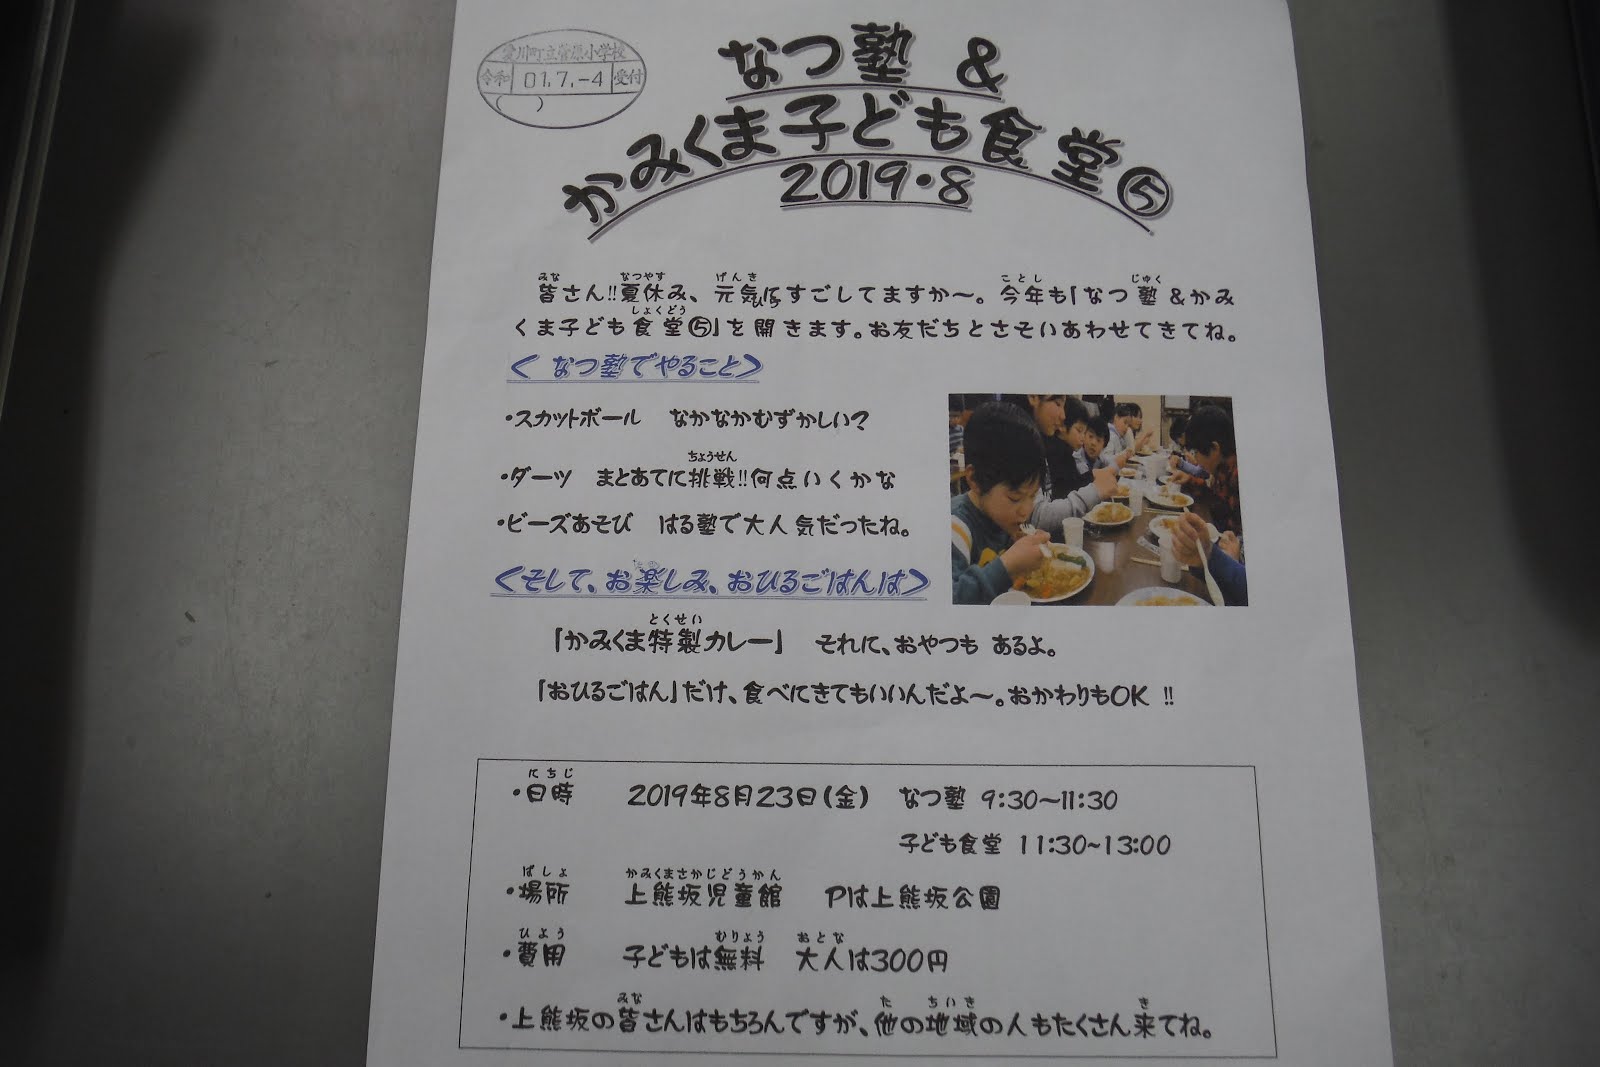 愛川町立菅原小学校
令和 01.7.-4 受付
なつ塾 &
かみくま子ども食堂⑤
2019・8
皆さん!!夏休み、元気にすごしてますか～。今年も「なつ塾&かみ
くま子ども食堂⑤」を開きます。お友だちとさそいあわせてきてね。
みな なつやす げんき ことし じゅく
しょくどう
＜なつ塾でやること＞
・スカットボール なかなかむずかしい?
ちょうせん
・ダーツ まとあてに挑戦!!何点いくかな
・ビーズあそび はる塾で大人気だったね。
＜そして、お楽しみ、おひるごはんは＞
とくせい
「かみくま特製カレー」 それに、おやつも あるよ。
「おひるごはん」だけ、食べにきてもいいんだよ～。おかわりもOK !!
にちじ
・日時 2019年8月23日(金) なつ塾 9:30～11:30
子ども食堂 11:30~13:00
ばしょ かみくまさかじどうかん
・場所 上熊坂児童館 Pは上熊坂公園
ひよう むりょう おとな
・費用 子どもは無料 大人は300円
みな た ちいき き
・上熊坂の皆さんはもちろんですが、他の地域の人もたくさん来てね。